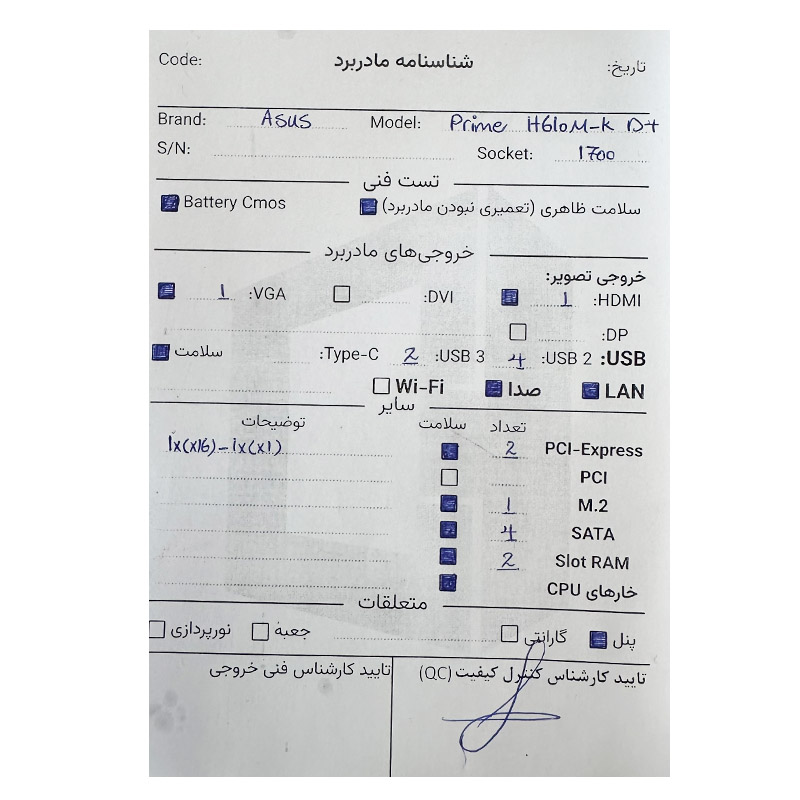 Code: شناسنامه مادربرد تاریخ:
Brand: Asus Model: Prime H610M-K D4
S/N: Socket: 1700
تست فنی
سلامت ظاهری (تعمیری نبودن مادربرد) Battery Cmos
خروجی‌های مادربرد
خروجی تصویر:
HDMI: 1 DVI: VGA: 1
DP:
USB: USB 2: 4 USB 3: 2 Type-C: سلامت
LAN صدا Wi-Fi
سایر
تعداد سلامت توضیحات
PCI-Express 2 1x(x16)-1x(x1)
PCI
M.2 1
SATA 4
Slot RAM 2
خارهای CPU
متعلقات
پنل گارانتی جعبه نورپردازی
تایید کارشناس کنترل کیفیت (QC) تایید کارشناس فنی خروجی